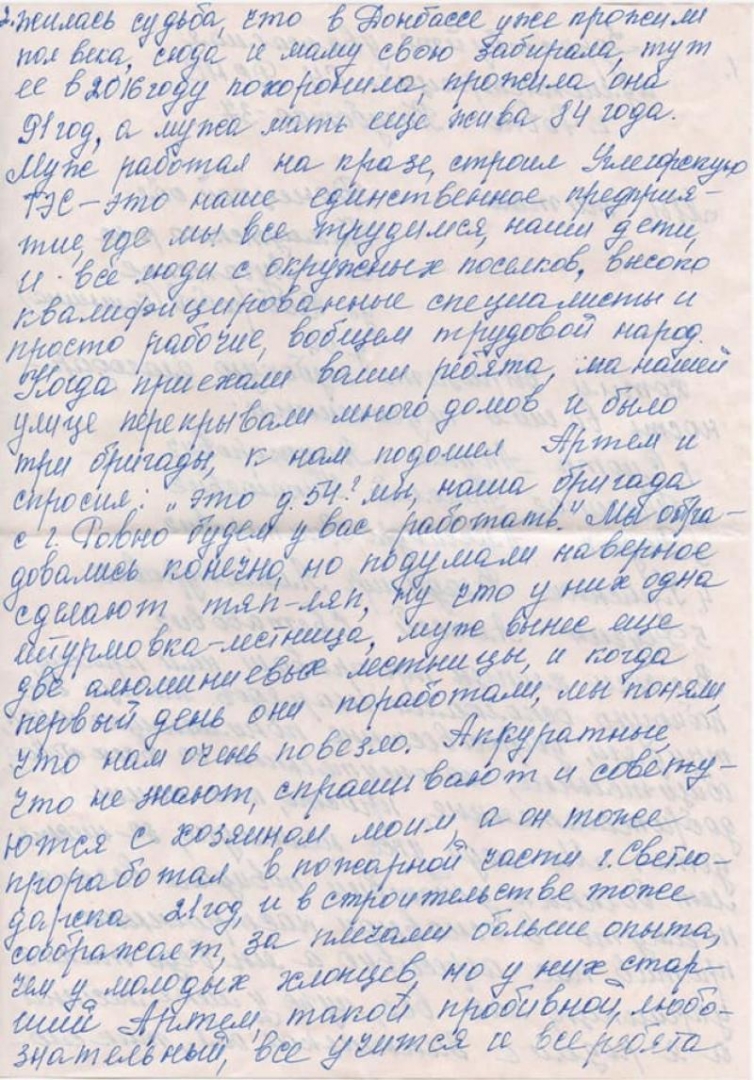 2. жилась судьба, что в Донбассе уже прожили
пол века, сюда и маму свою забирала, тут
ее в 2016 году похоронила, прожила она
91 год, а мужа мать еще жива 84 года.
Муж работал на кразе, строил Углегорскую
ТЭС – это наше единственное предприя-
тие, где мы все трудимся, наши дети,
и все люди с окружных поселков, высоко
квалифицированные специалисты и
просто рабочие, вобщем трудовой народ.
Когда приехали ваши ребята, на нашей
улице перекрывали много домов и было
три бригады, к нам подошел Артем и
спросил: „это д. 54? мы, наша бригада
с г. Ровно будем у вас работать." Мы обра-
довались конечно, но подумали наверное
сделают тяп-ляп, ну что у них одна
штурмовка-лестница, муж вынес еще
две алюминиевых лестницы, и когда
первый день они поработали, мы поняли,
что нам очень повезло. Аккуратные,
что не знают, спрашивают и совету-
ются с хозяином моим, а он тоже
проработал в пожарной части г. Светло-
дарска 21 год, и в строительстве тоже
соображает, за плечами больше опыта,
чем у молодых хлопцев, но у них стар-
ший Артем, такой пробивной, любо-
знательный, все учится и все ребята